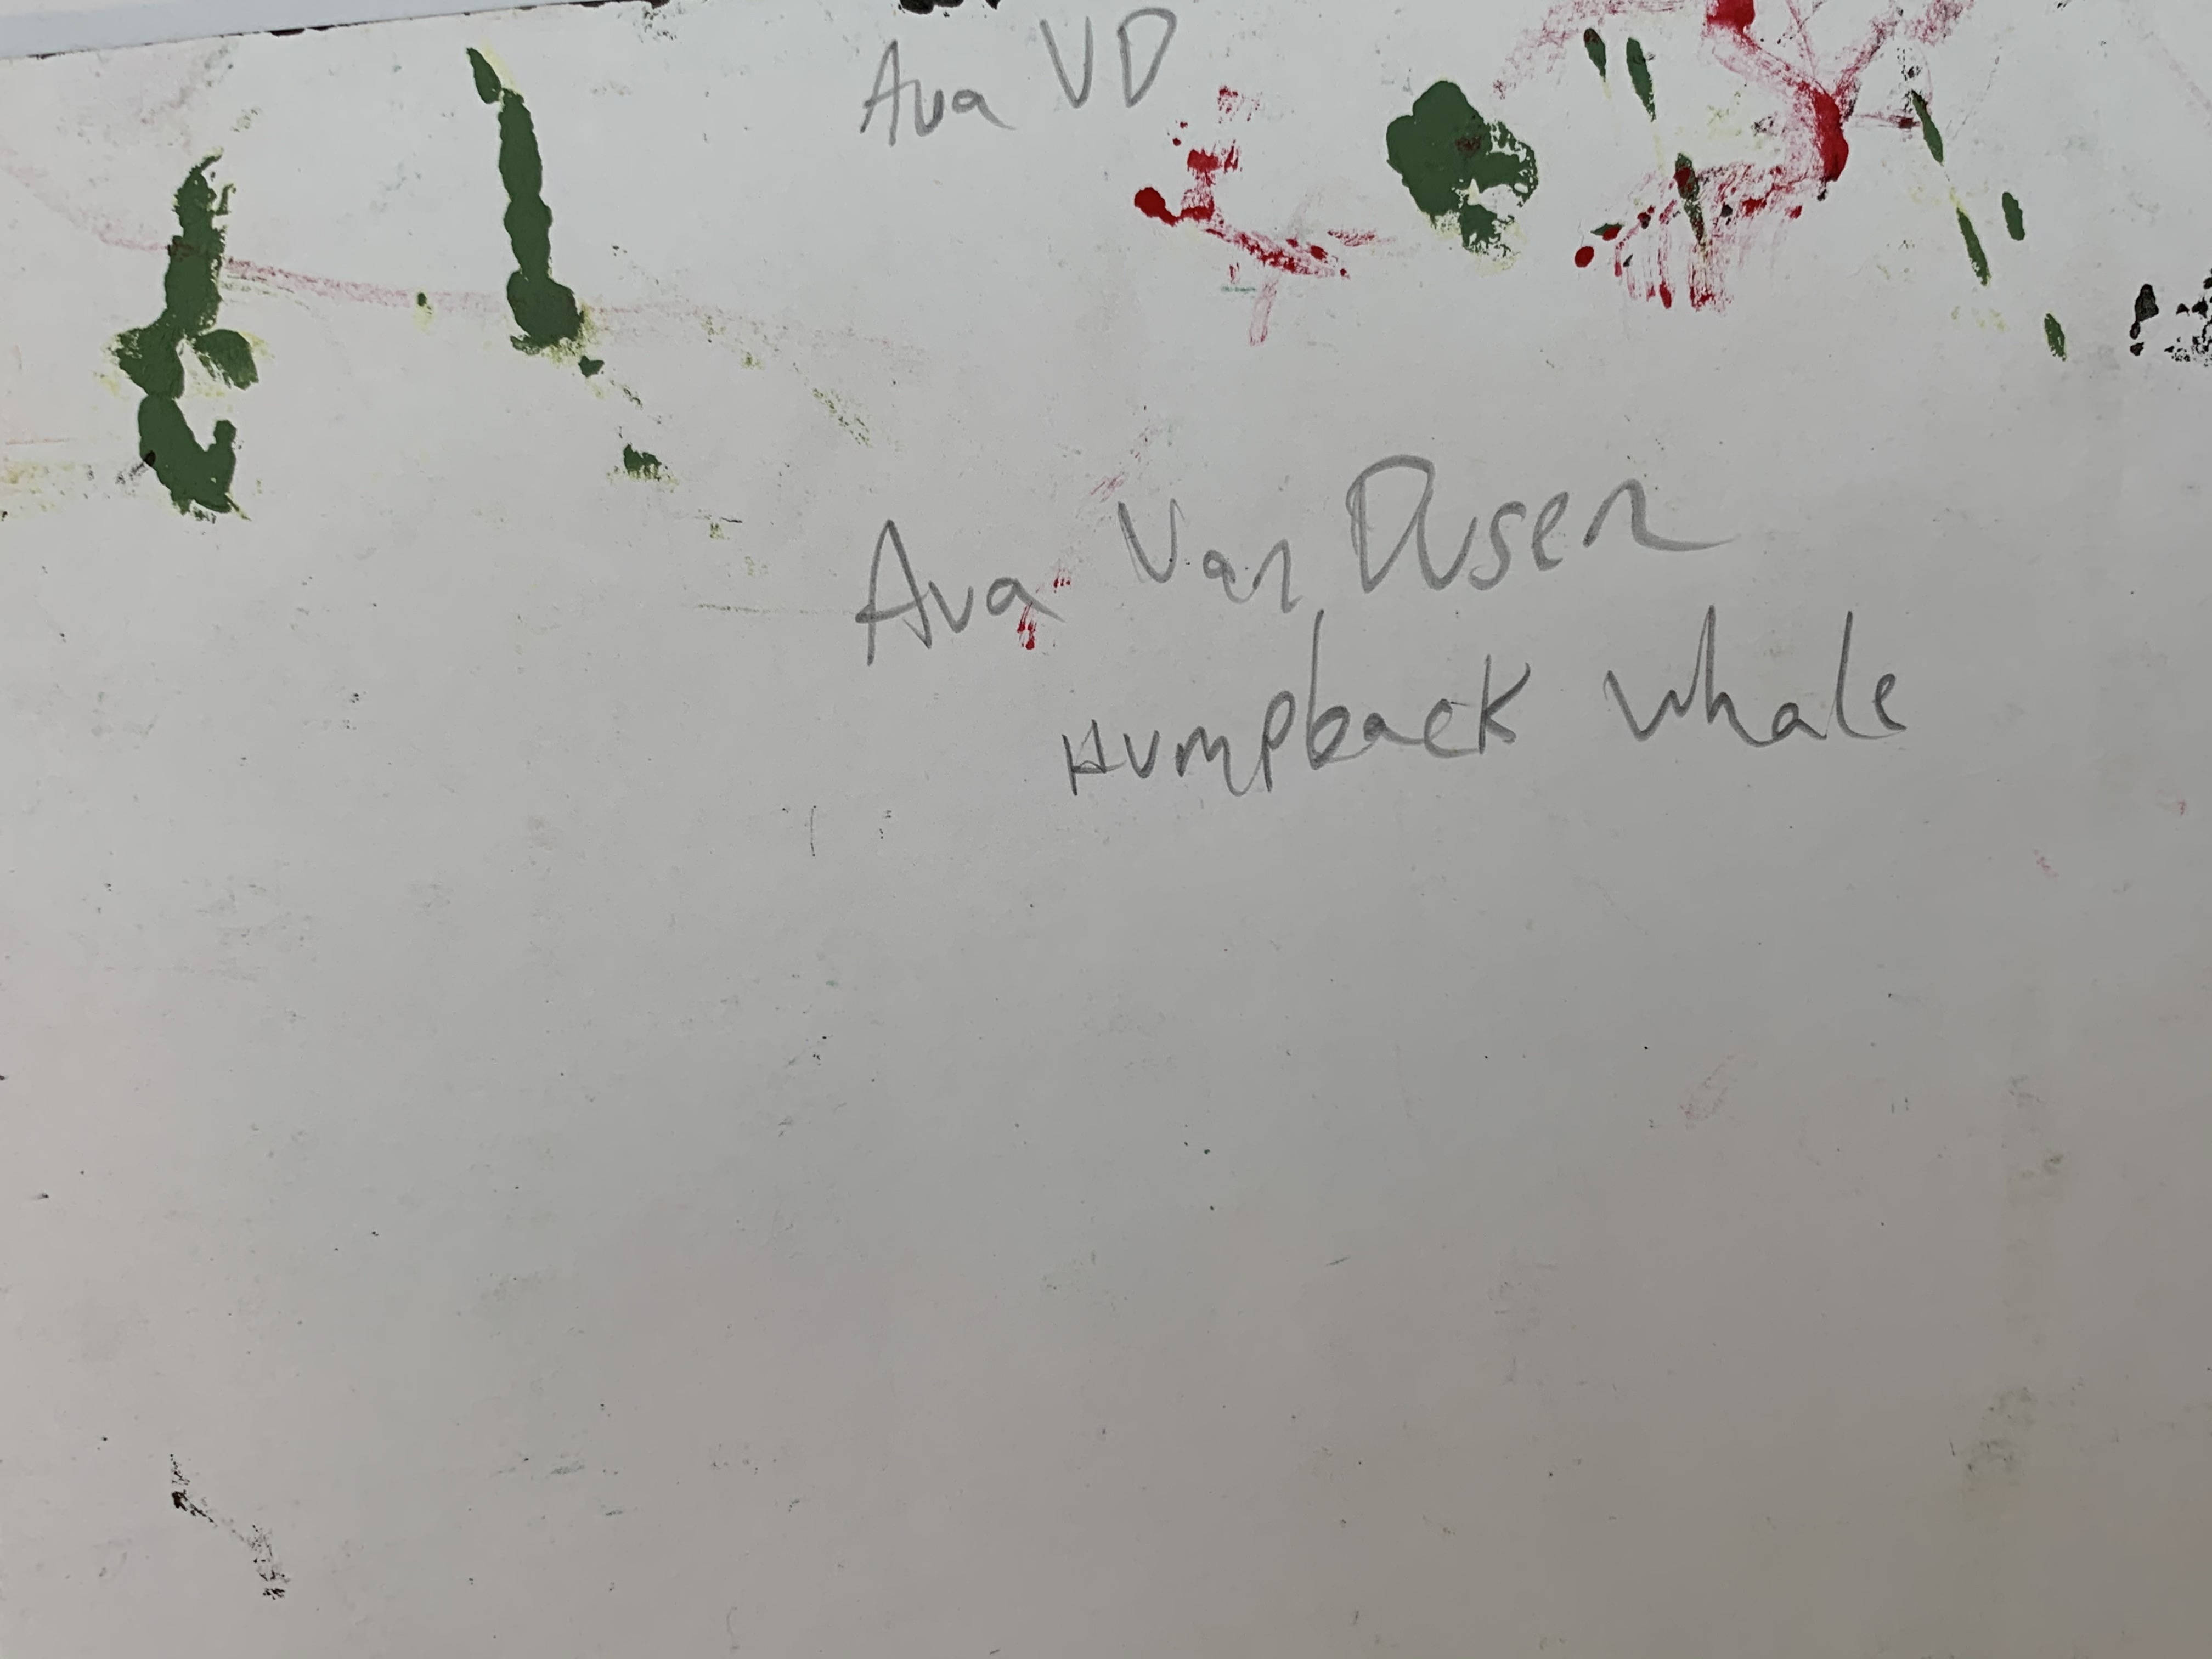 Ava VD
Ava Van Dusen
Humpback whale